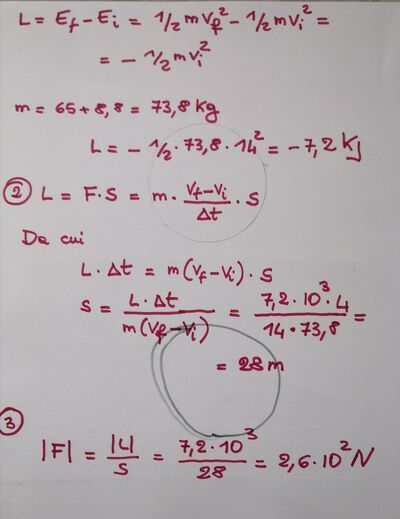 L = Ef - Ei = 1/2 m vf² - 1/2 m vi² =
= - 1/2 m vi²
m = 65 + 8,8 = 73,8 kg
L = - 1/2 · 73,8 · 14² = - 7,2 kJ
② L = F · S = m · (vf - vi)/Δt · S
Da cui
L · Δt = m (vf - vi) · S
S = L · Δt / m (vf - vi) = 7,2 · 10³ · 4 / 14 · 73,8 =
= 28 m
③
|F| = |L|/S = 7,2 · 10³ / 28 = 2,6 · 10² N